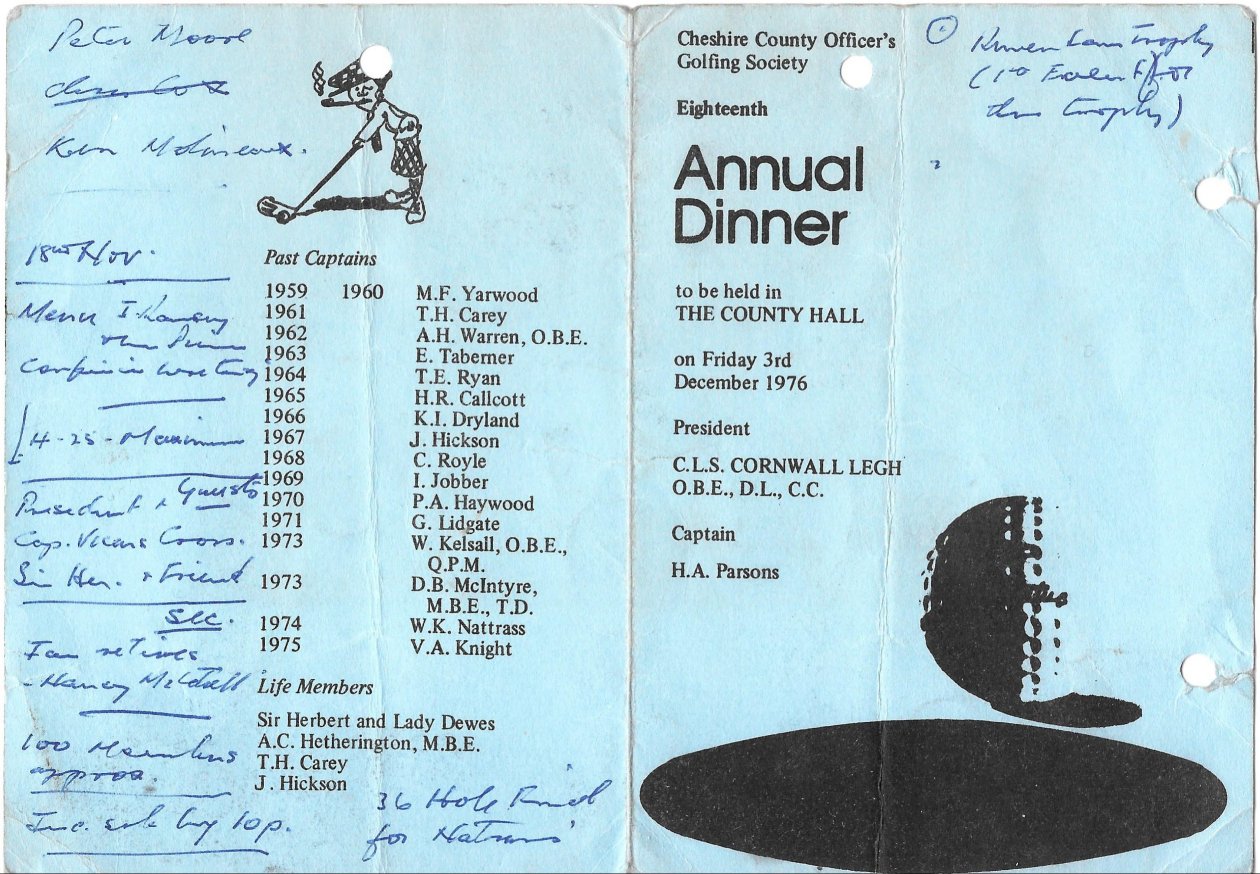 Peter Moore
Ken Molineaux.
18th Nov.
Menu
H-25-Maximum
President + Guests
Cap. Vicars Cross.
Sir Her. + Friend
Sec.
Ian retires
100 Members
approx.
Inc. sub by 10p.
36 Hole Final
for
Past Captains
1959 1960 M.F. Yarwood
1961 T.H. Carey
1962 A.H. Warren, O.B.E.
1963 E. Taberner
1964 T.E. Ryan
1965 H.R. Callcott
1966 K.I. Dryland
1967 J. Hickson
1968 C. Royle
1969 I. Jobber
1970 P.A. Haywood
1971 G. Lidgate
1973 W. Kelsall, O.B.E.,
Q.P.M.
1973 D.B. McIntyre,
M.B.E., T.D.
1974 W.K. Nattrass
1975 V.A. Knight
Life Members
Sir Herbert and Lady Dewes
A.C. Hetherington, M.B.E.
T.H. Carey
J. Hickson
Cheshire County Officer's
Golfing Society
Eighteenth
Annual
Dinner
to be held in
THE COUNTY HALL
on Friday 3rd
December 1976
President
C.L.S. CORNWALL LEGH
O.B.E., D.L., C.C.
Captain
H.A. Parsons
trophy
trophy)